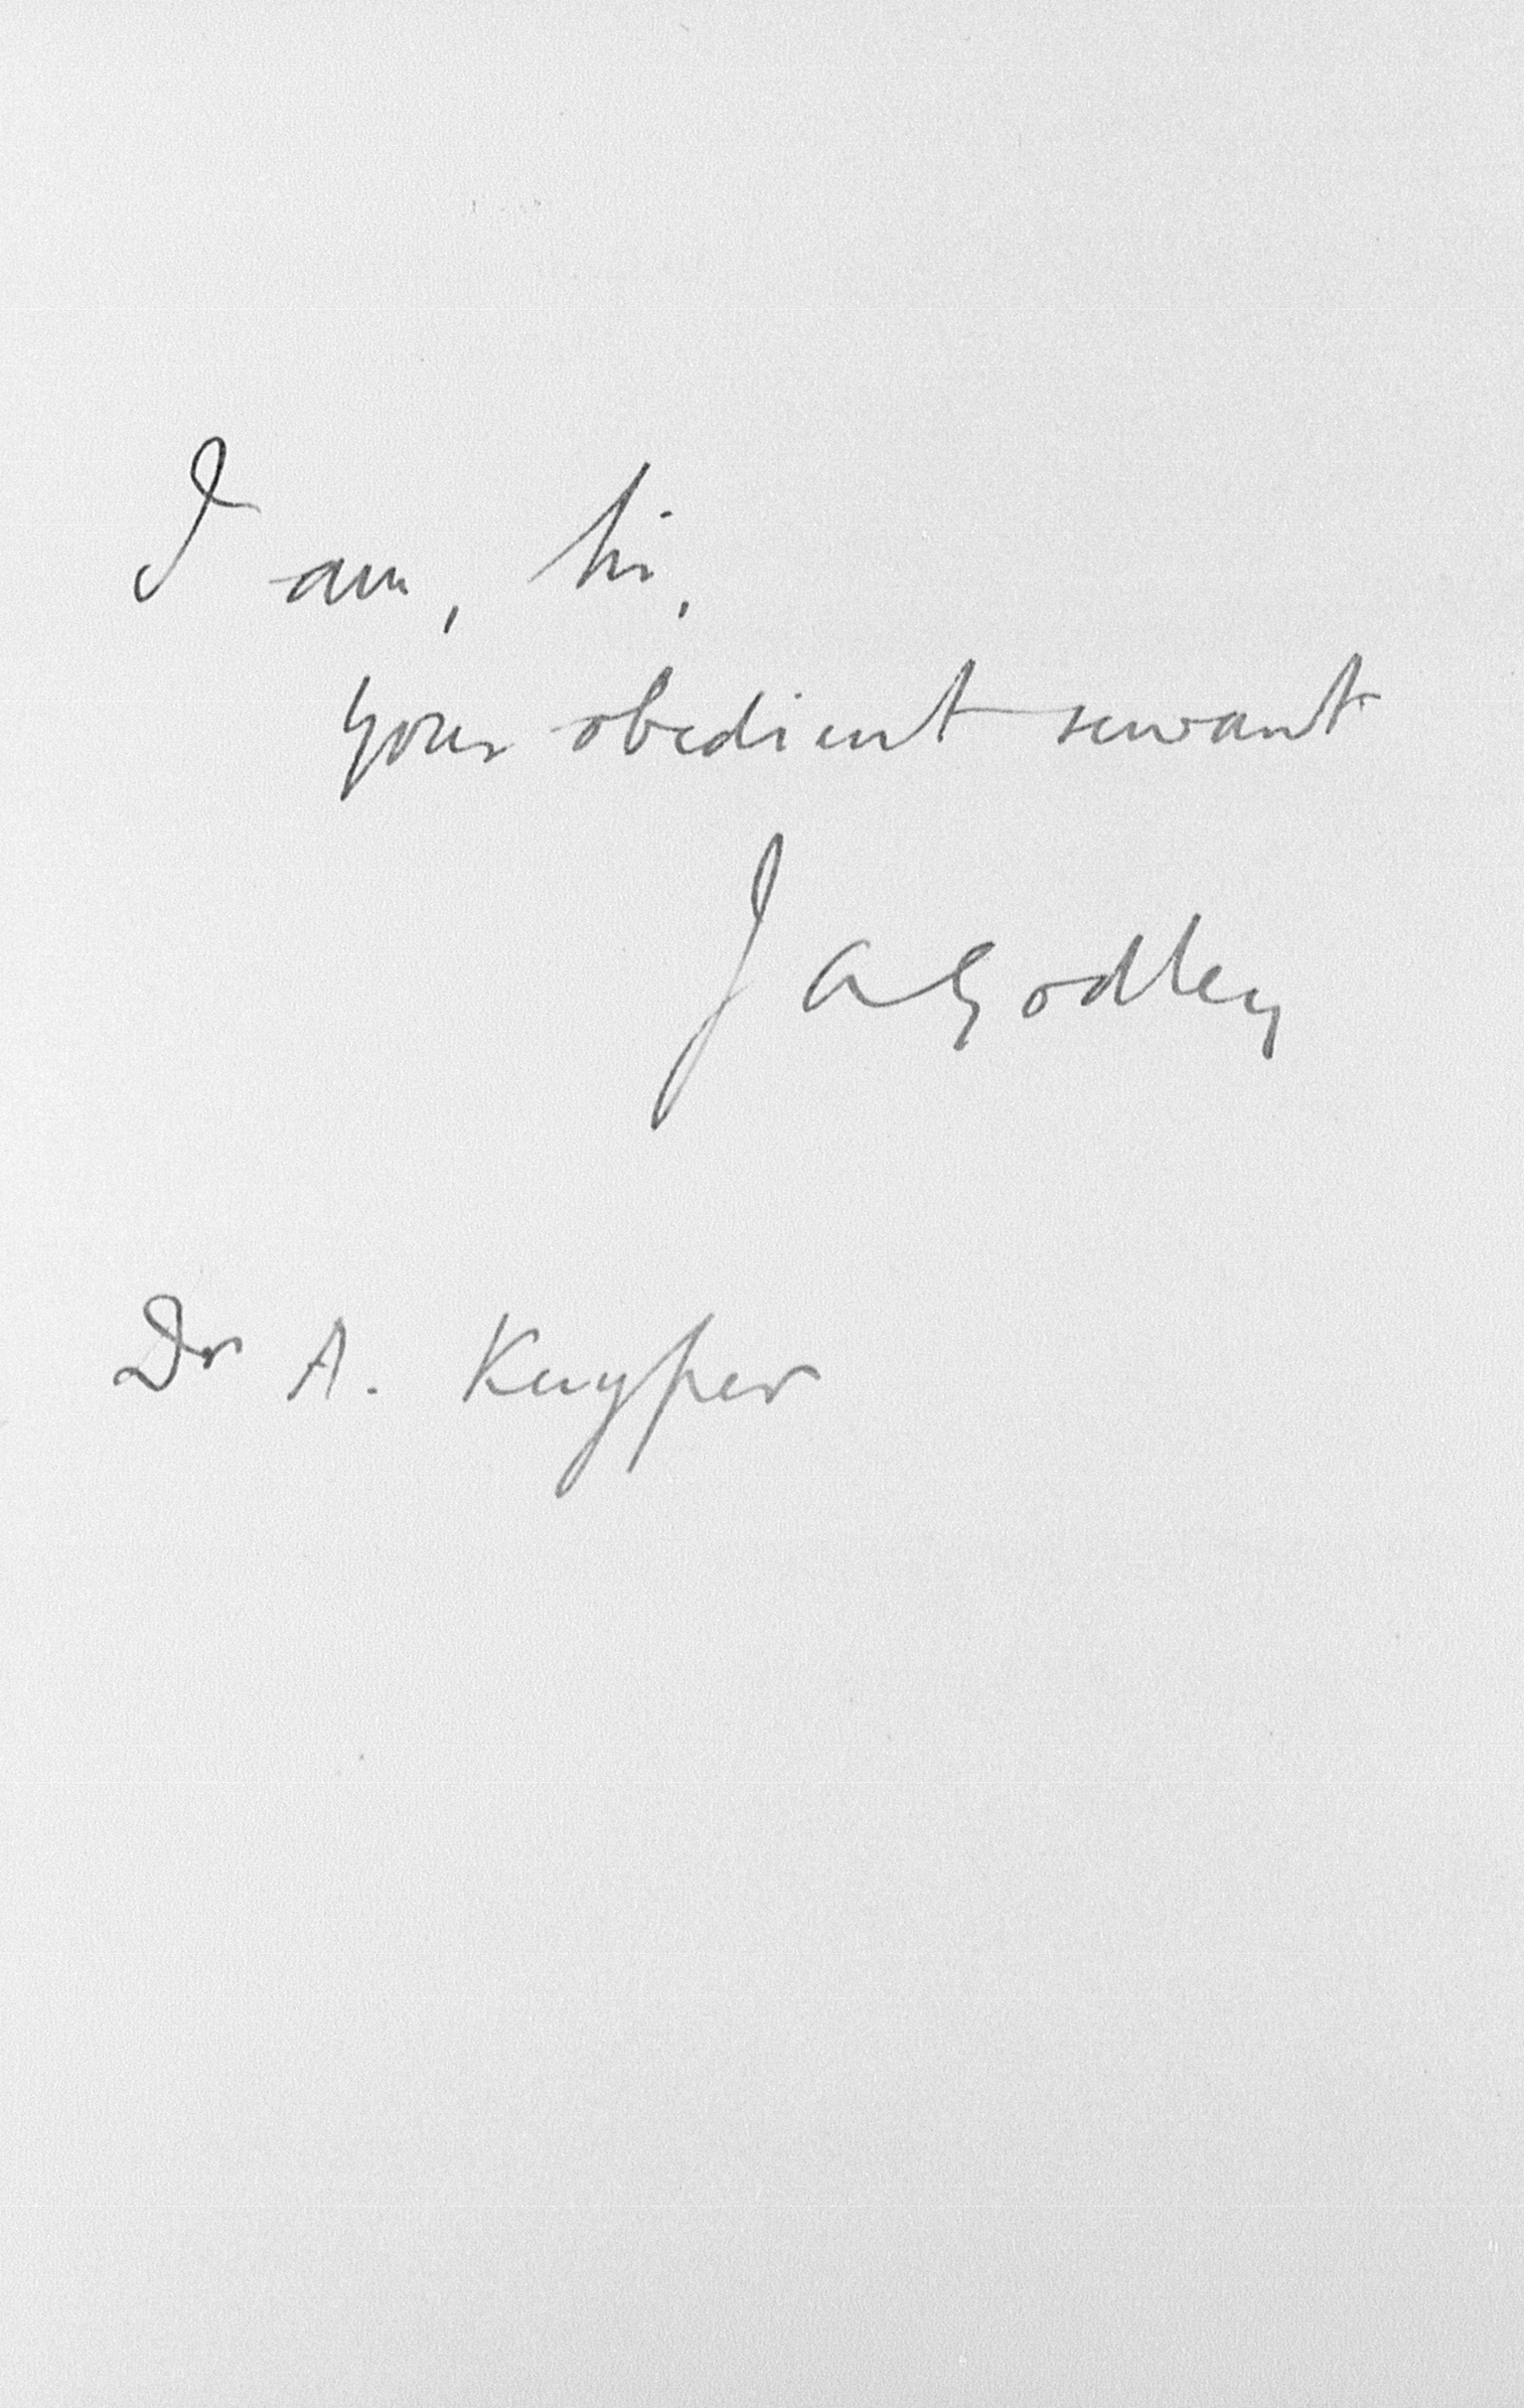 I am, Sir,
your obedient servant
J A Godley
Dr A. Kuyper